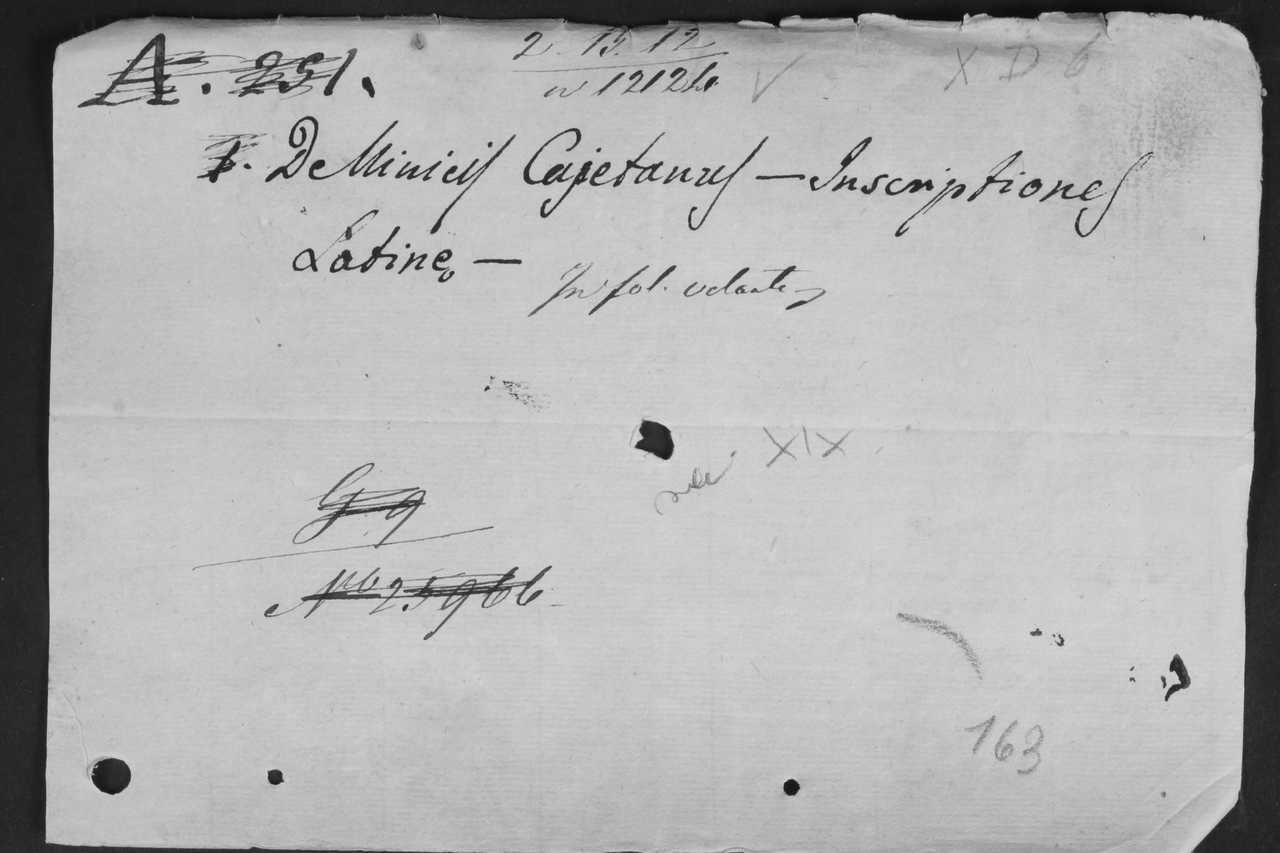 A. 251.
2. 15. 12
n 12124
V
X D 6
1. De Miniciis Cajetanus — Inscriptiones
Latinę —
In fol. volante
XIX.
G. 9
Nro 25966
163